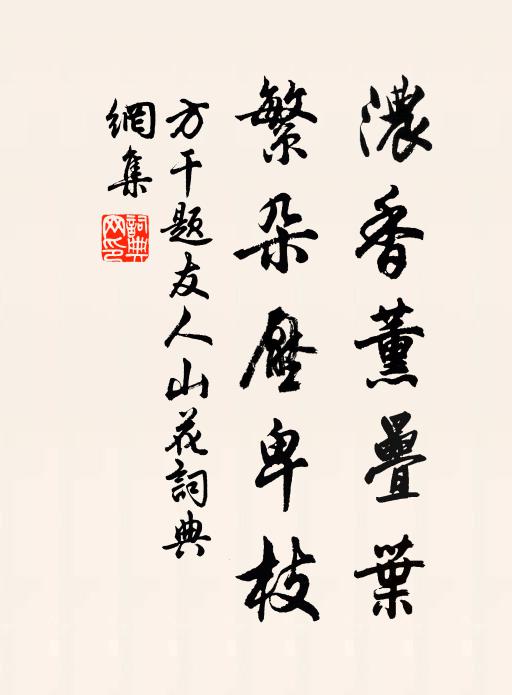 濃香薰疊葉
繁朵壓卑枝
方干題友人山花詞典
網集
詞典網印